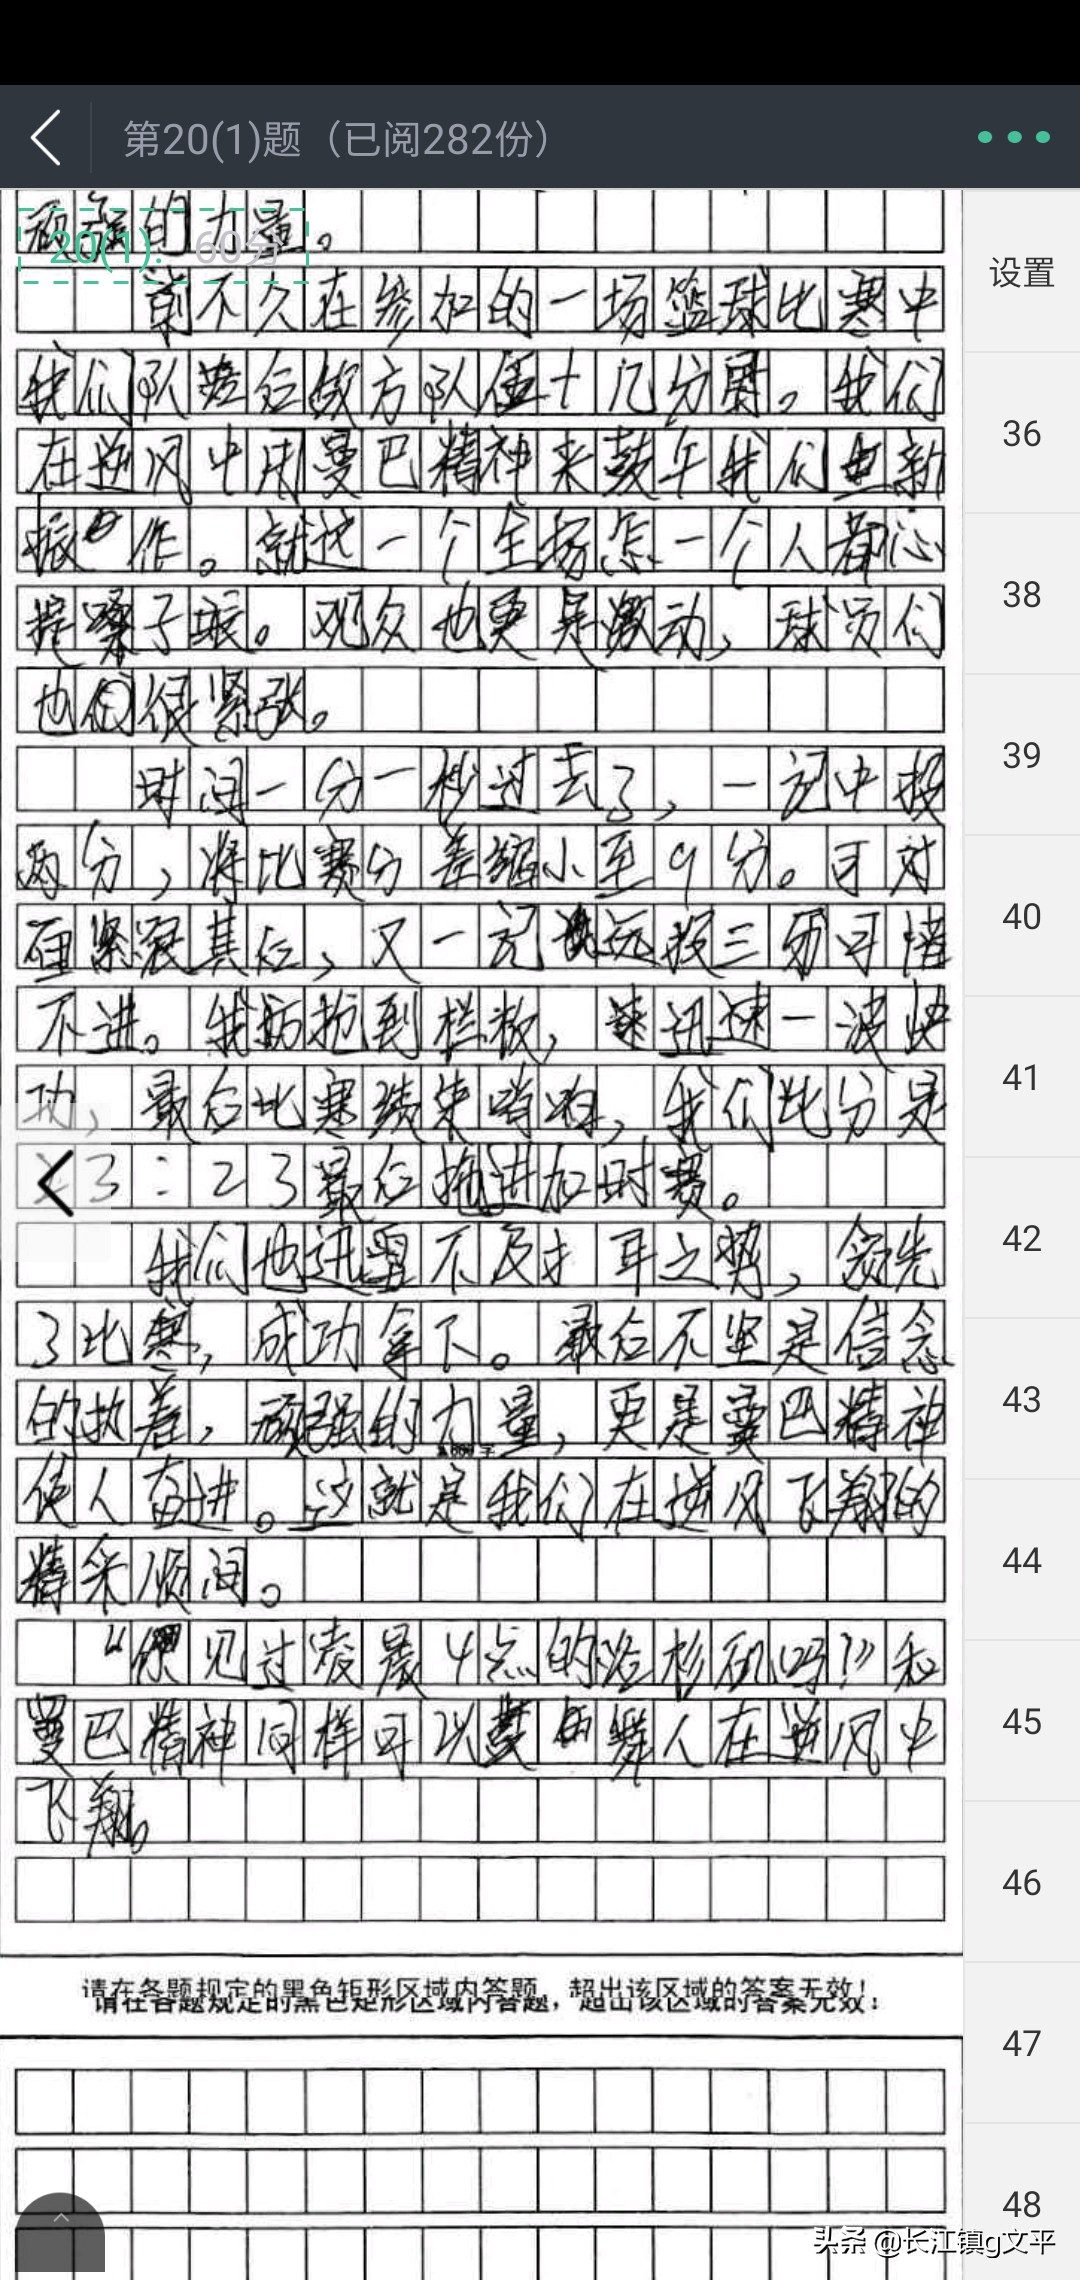 第20(1)题（已阅282份）
设置
36
38
39
40
41
42
43
44
45
46
47
48
20(1): 60分
顽强的力量。
前不久在参加的一场篮球比赛中
我们队落后敌方队伍十几分 。我们
在逆风中用曼巴精神来鼓午我们重新
振作。就这一个全场 一个人都心
提嗓子眼。观众也更是激动，球员们
也 很紧张。
时间一分一秒过去了，一记中投
两分，将比赛分差缩小至9分。可对
面紧跟其后，又一记 远投三分可惜
不进。我方抢到栏板， 迅速一波快
功，最后比赛结束哨响，我们比分是
3：23最后拖进加时赛。
我们也迅雷不及才耳之势，领先
了比赛，成功拿下。最后不坚是信念
的执着，顽强的力量，更是曼巴精神
使人奋进。这就是我们在逆风飞翔的
精采顺间。
“你见过凌晨4点的洛杉矶吗？”和
曼巴精神同样可以 舞人在逆风中
飞翔。
请在各题规定的黑色矩形区域内答题，超出该区域的答案无效！
请在各题规定的黑色矩形区域内答题，超出该区域的答案无效！
头条 @长江镇g文平